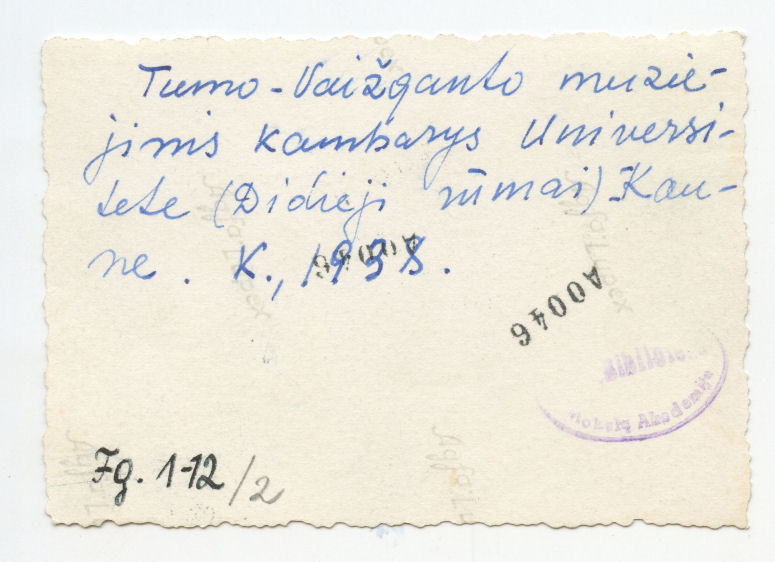 Tumo-Vaižganto muzie-
jinis kambarys Universi-
tete (Didieji rūmai) Kau-
ne. K., 1938.
A0046
A0046
Biblioteka
Mokslų Akademija
Fg. 1-12/2